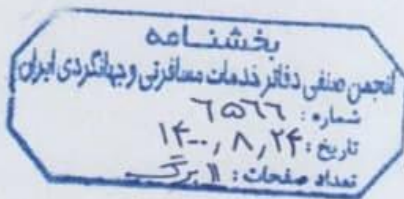 بخشنامه
انجمن صنفی دفاتر خدمات مسافرتی و جهانگردی ایران
شماره: ۶۵۶۶
تاریخ: ۱۴۰۰,۸,۲۴
تعداد صفحات: ۱۱ برگ